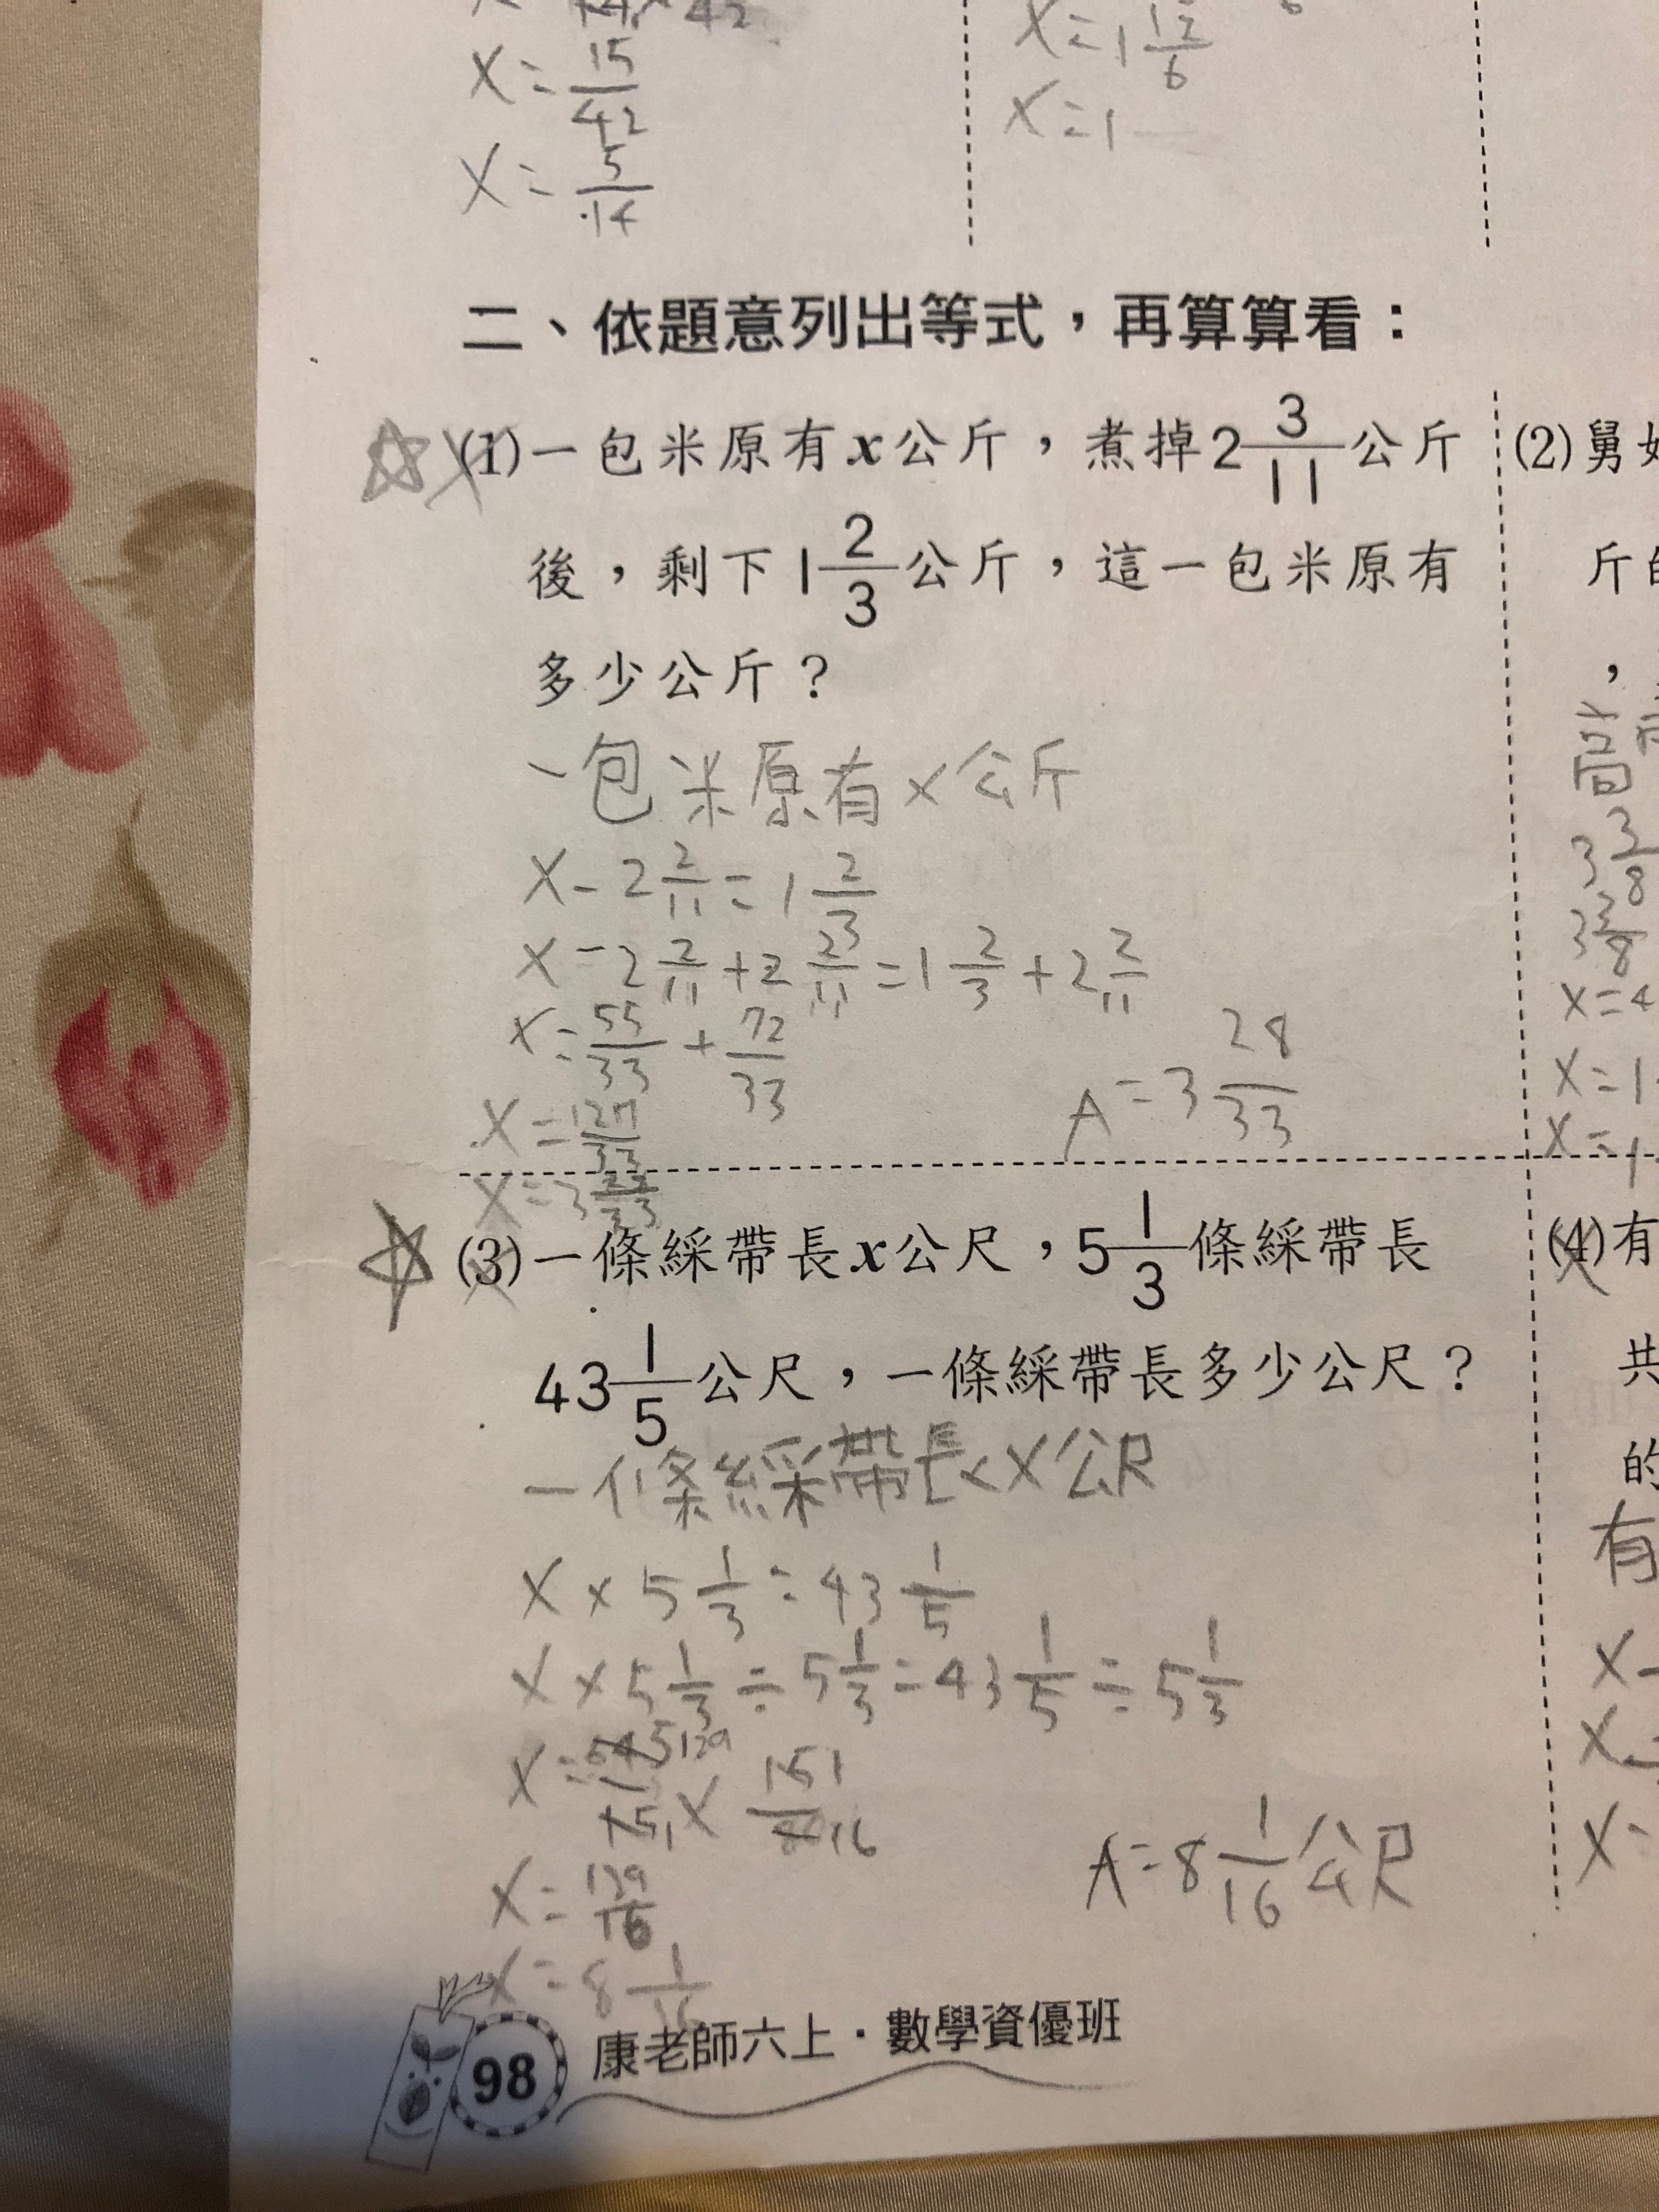 x = 15/42
x = 5/14
x = 1 12/6
x = 1
二、依題意列出等式，再算算看：
(1)一包米原有x公斤，煮掉2 3/11公斤
後，剩下1 2/3公斤，這一包米原有
多少公斤？
一包米原有x公斤
x - 2 2/11 = 1 2/3
x - 2 2/11 + 2 2/11 = 1 2/3 + 2 2/11
x = 55/33 + 72/33
x = 127/33
x = 3 28/33
A = 3 28/33
(2)舅
斤
，
3 3/8
x = 4
x = 1
x = 1
(3)一條綵帶長x公尺，5 1/3條綵帶長
43 1/5公尺，一條綵帶長多少公尺？
一條綵帶長x公尺
x × 5 1/3 = 43 1/5
x × 5 1/3 ÷ 5 1/3 = 43 1/5 ÷ 5 1/3
x = 129/16
x = 8 1/16
A = 8 1/16 公尺
(4)有
共
的
有
x -
x -
x =
98 康老師六上·數學資優班